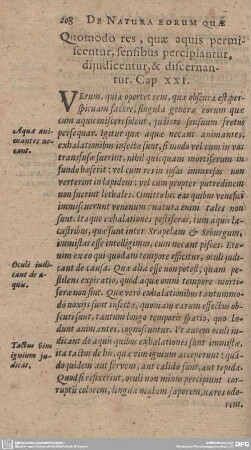 208 DE NATURA EORUM QUÆ
Quomodo res, quæ aquis permi-
scentur, sensibus percipiantur,
dijudicentur, & discernan-
tur. Cap XXI.
VErum, quia oportet rem, quæ obscura est per-
spicuam facere, singula genera eorum quæ
cum aquis miscentur, judicio sensuum fretus
persequar. Igitur quæ aquæ necant animantes,
exhalationibus infectæ sunt, si modo vel cum in vas
transfusæ fuerint, nihil quicquam mortiferum in
fundo haserit: vel cum res in ipsas immersas non
verterint in lapidem: vel cum propter putredinem
non fuerint lethales. Omittо eas quibus venefici
immiscuerunt venenum: natura enim tales non
sunt. Ita que exhalationes pestiferas, tum aquis la-
custribus, quæ sunt inter Srapelam & Seburgum,
immistas esse intelligimus, cum necant pisces. Ete-
nim ex eo quod quidam tempore efficitur, oculi judi-
cant de causa. Qua alia esse non potest, quam pe-
stilens expiratio, quod aquæ omni tempore morti-
feræ non sint. Quæ verò exhalationibus tantummo-
do noxijs sunt infectæ, quoniam earum effectus ob-
scuri sunt, tantum longo temporis spatio, quo læ-
dunt animantes, cognoscuntur. Ut autem oculi ju-
dicant de aquis quibus exhalationes sunt immistæ,
ita tactus de his, quæ vim ignium acceperunt: quæ-
do quidem aut fervent, aut calidæ sunt, aut tepidæ.
Quod si refrixerint, oculi non minus percipiunt cor-
ruptum colorem, lingua malum saporem, nares odo-
rem,
Aquæ ani-
mantes ne-
cant.
Oculi judi-
cant de a-
quis.
Tactus vim
ignium ju-
dicat.